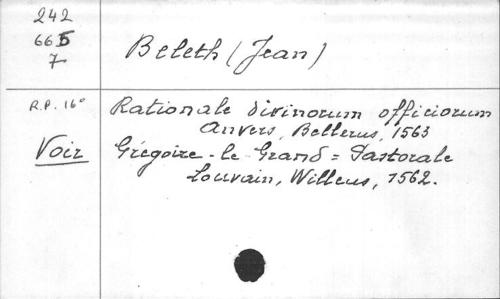 242
665
7
Beleth (Jean)
R.P. 16°
Rationale divinorum officiorum
Anvers, Bellerus, 1563
Voir
Grégoire-le-Grand = Pastorale
Louvain, Willeus, 1562.